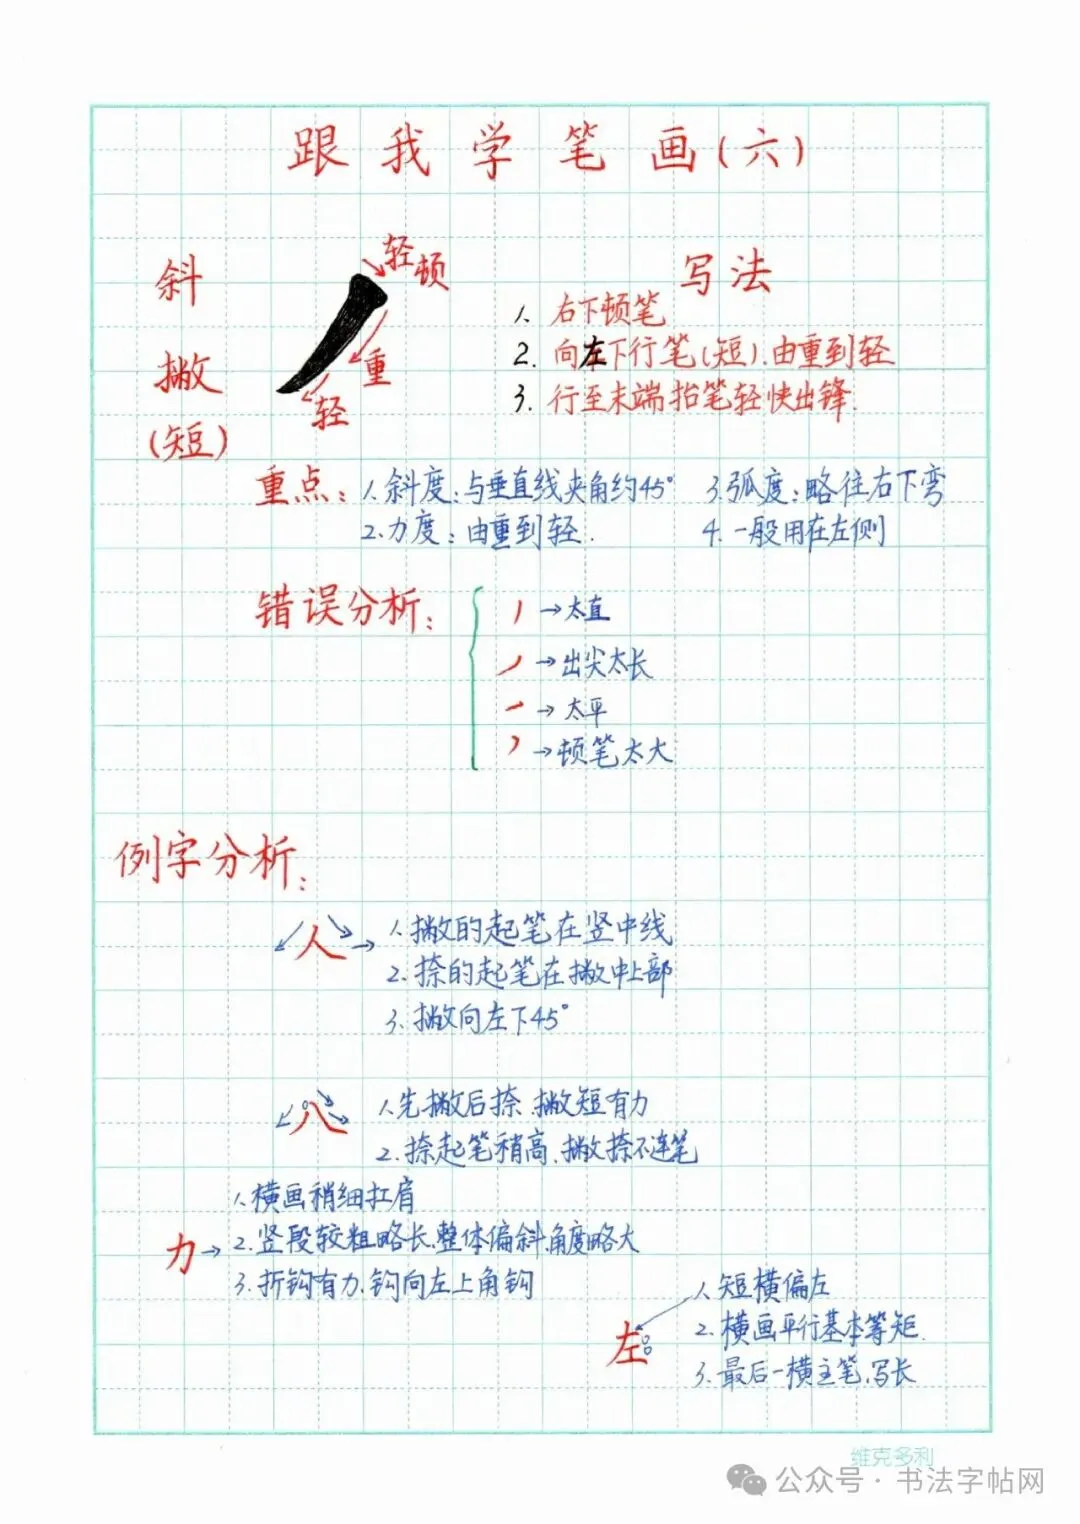 跟我学笔画(六)
斜撇(短)
轻顿
重
轻
写法
1. 右下顿笔
2. 向左下行笔(短).由重到轻
3. 行至末端抬笔轻快出锋.
重点: 1.斜度:与垂直线夹角约45° 3.弧度:略往右下弯
2.力度:由重到轻. 4.一般用在左侧
错误分析:
→太直
→出尖太长
→太平
→顿笔太大
例字分析:
人→ 1.撇的起笔在竖中线
2.捺的起笔在撇中上部
3.撇向左下45°
八 1.先撇后捺.撇短有力
2.捺起笔稍高.撇捺不连笔
1.横画稍细扛肩
力→2.竖段较粗略长.整体偏斜.角度略大
3.折钩有力.钩向左上角钩
左 1.短横偏左
2.横画平行基本等矩.
3.最后一横主笔.写长
维克多利
公众号·书法字帖网